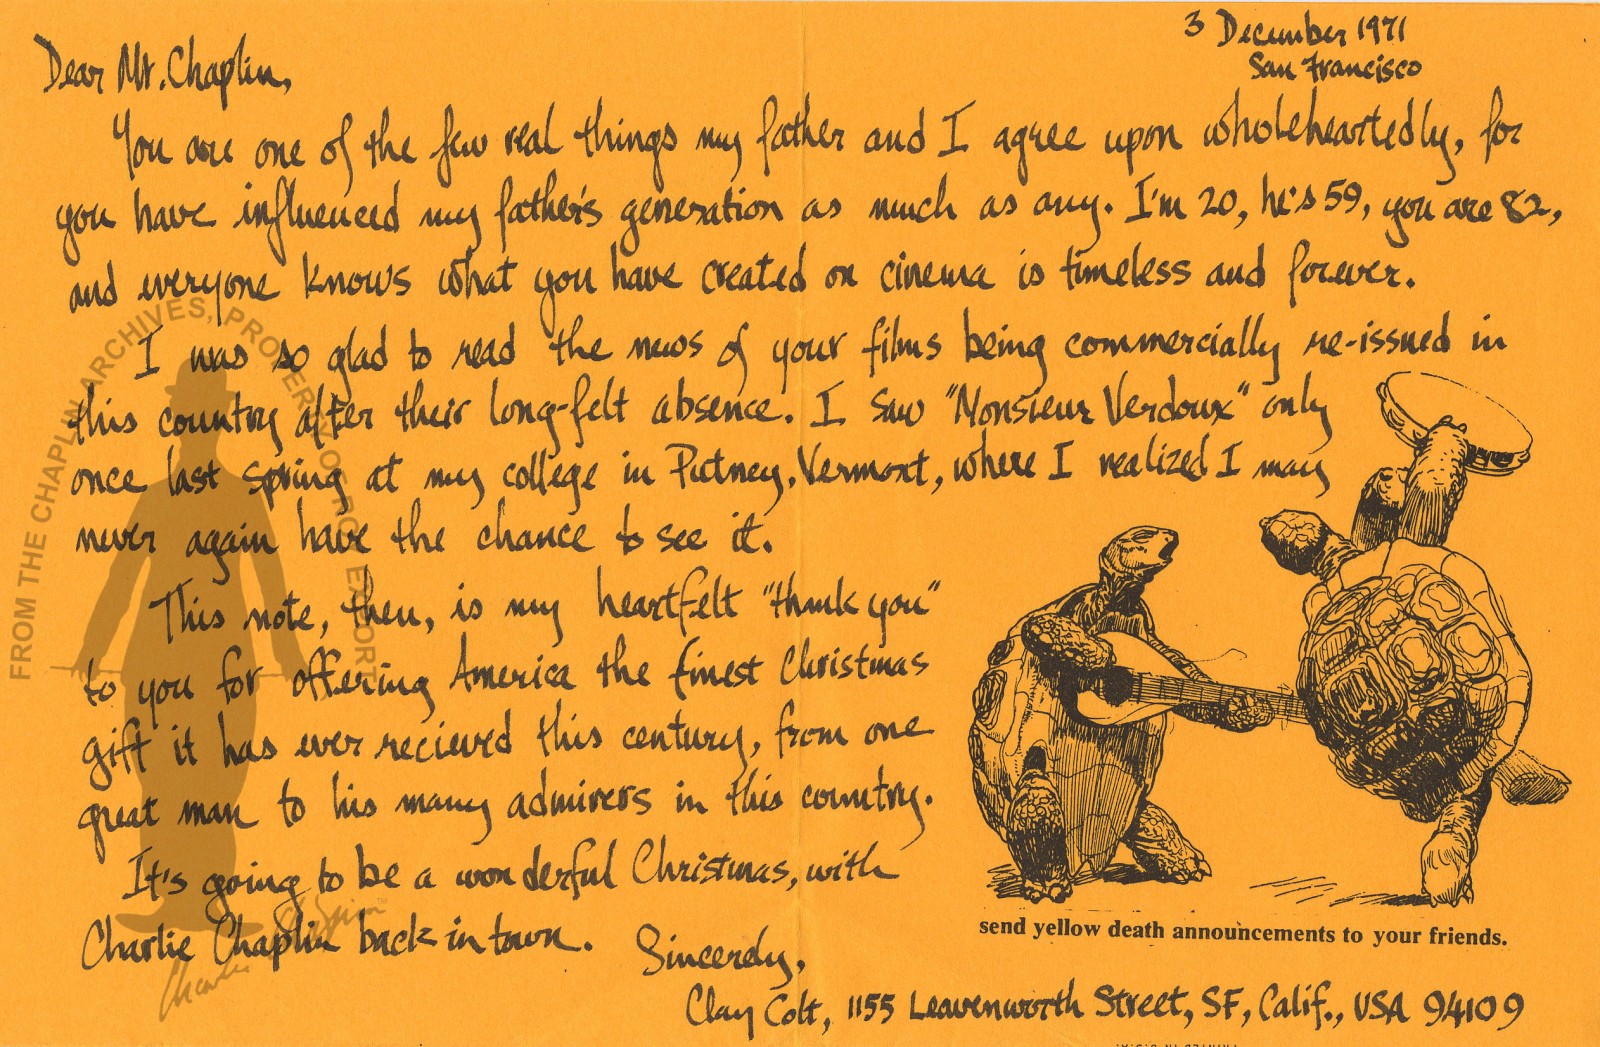 3 December 1971
San Francisco
Dear Mr. Chaplin,
You are one of the few real things my father and I agree upon wholeheartedly, for
you have influenced my father's generation as much as any. I'm 20, he's 59, you are 82,
and everyone knows what you have created on cinema is timeless and forever.
I was so glad to read the news of your films being commercially re-issued in
this country after their long-felt absence. I saw "Monsieur Verdoux" only
once last spring at my college in Putney, Vermont, where I realized I may
never again have the chance to see it.
This note, then, is my heartfelt "thank you"
to you for offering America the finest Christmas
gift it has ever recieved this century, from one
great man to his many admirers in this country.
It's going to be a wonderful Christmas, with
Charlie Chaplin back in town.
Sincerely,
Clay Colt, 1155 Leavenworth Street, SF, Calif., USA 94109
send yellow death announcements to your friends.
FROM THE CHAPLIN ARCHIVES, PROPERTY OF ROY EXPORT
Charlie Chaplin